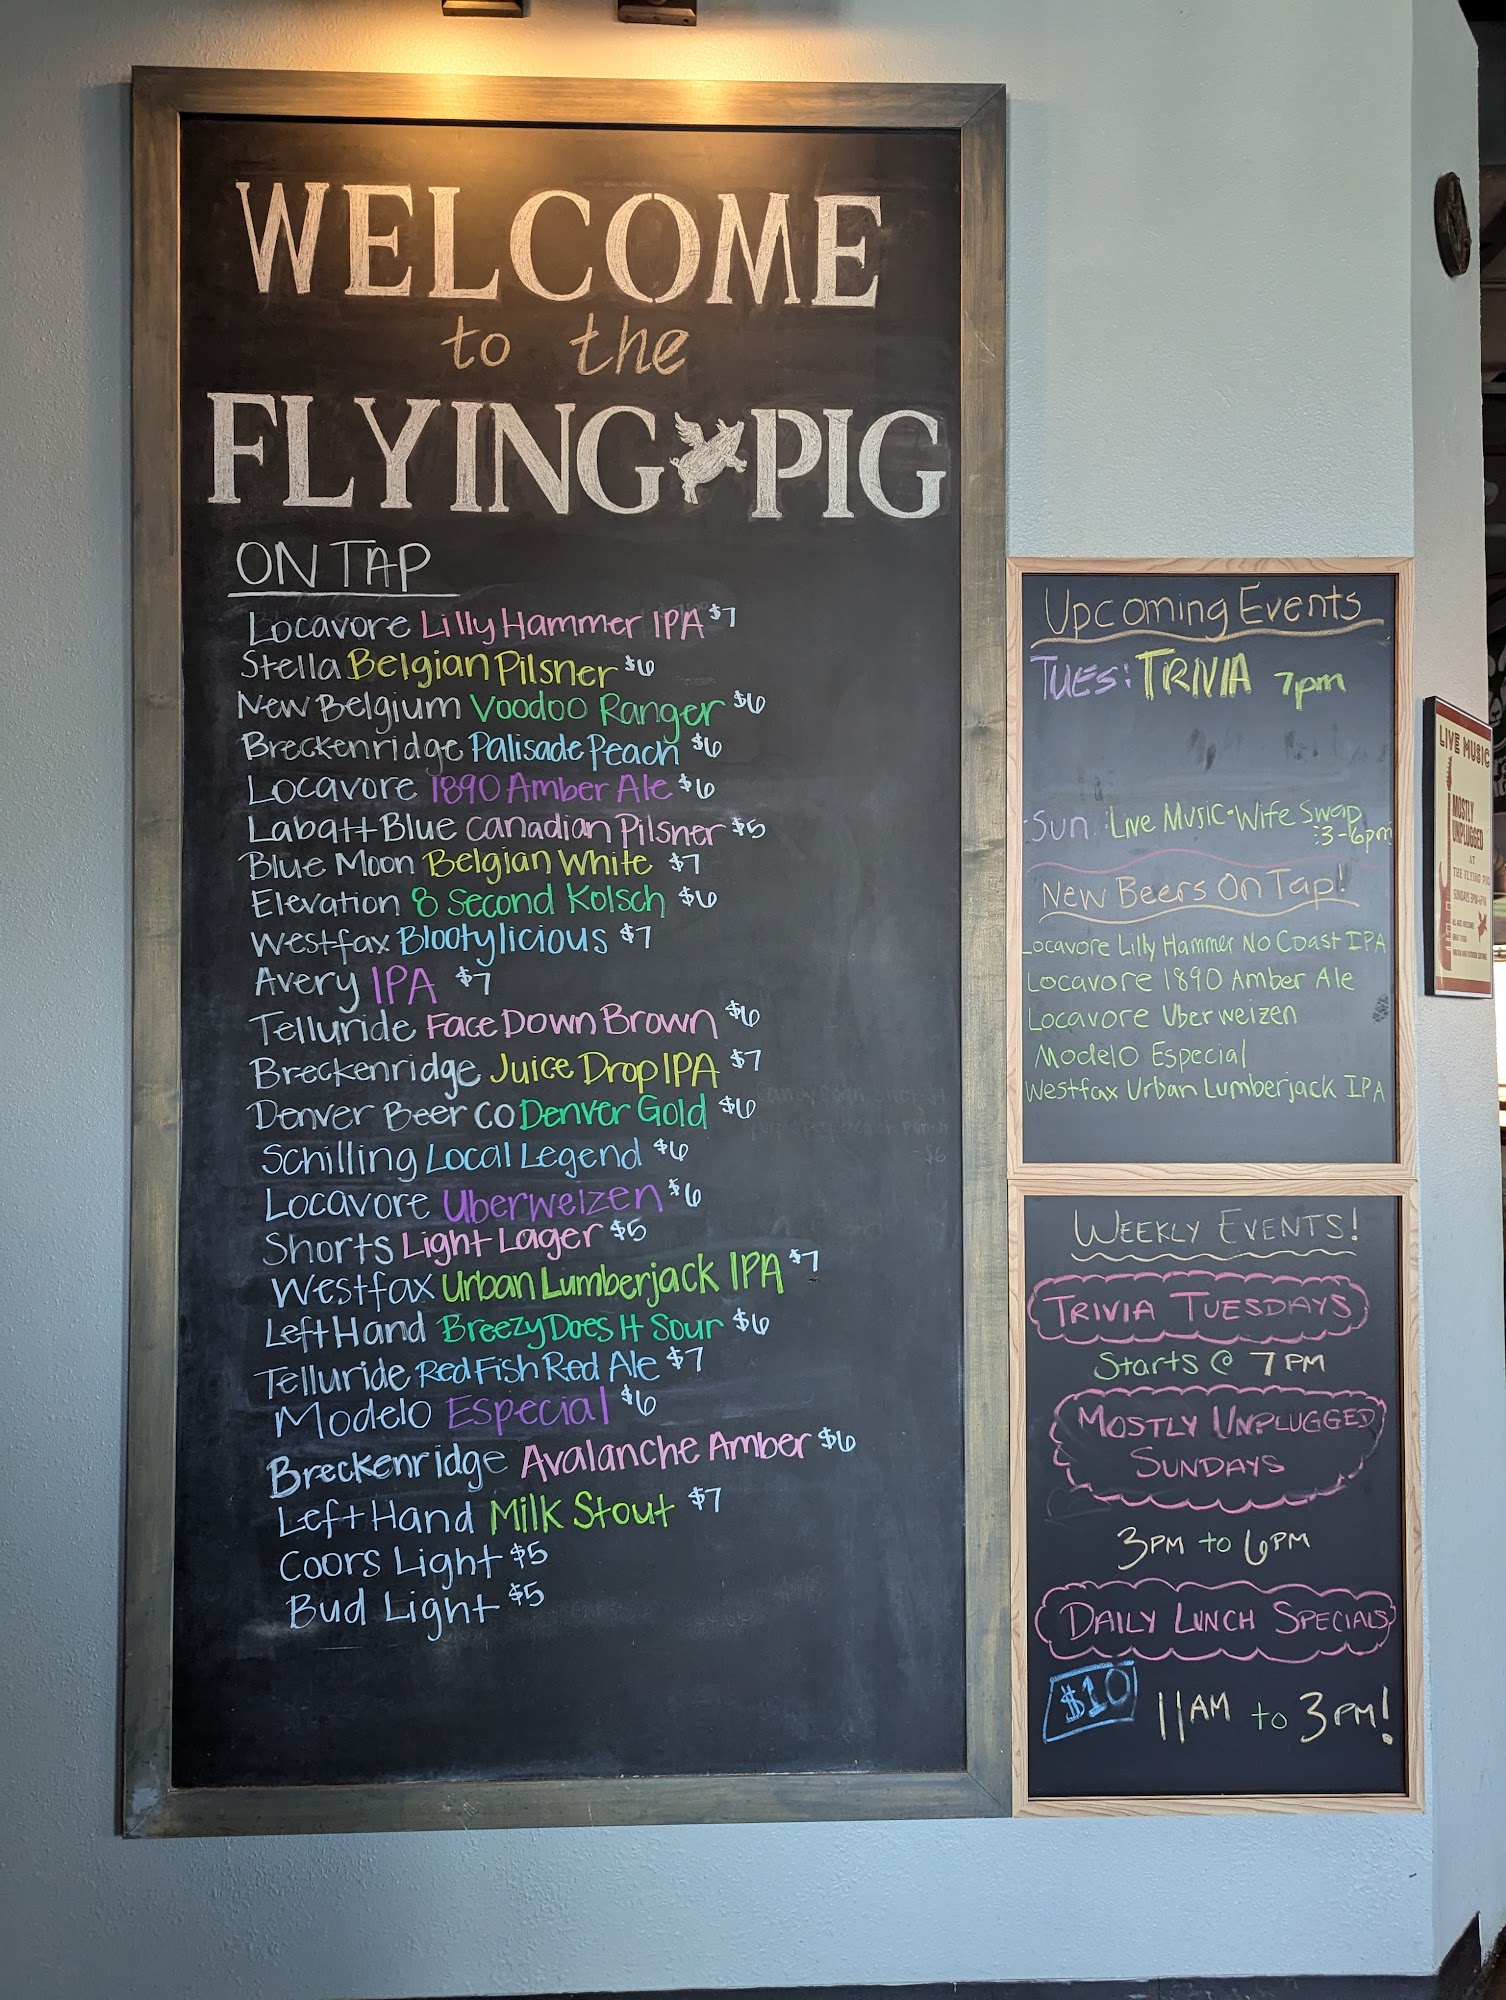 WELCOME
to the
FLYING PIG
ON TAP
Locavore Lilly Hammer IPA $7
Stella Belgian Pilsner $6
New Belgium Voodoo Ranger $6
Breckenridge Palisade Peach $6
Locavore 1890 Amber Ale $6
Labatt Blue Canadian Pilsner $5
Blue Moon Belgian White $7
Elevation 8 Second Kolsch $6
Westfax Blootylicious $7
Avery IPA $7
Telluride Face Down Brown $6
Breckenridge Juice Drop IPA $7
Denver Beer Co Denver Gold $6
Schilling Local Legend $6
Locavore Uberweizen $6
Shorts Light Lager $5
Westfax Urban Lumberjack IPA $7
Left Hand Breezy Does It Sour $6
Telluride Red Fish Red Ale $7
Modelo Especial $6
Breckenridge Avalanche Amber $6
Left Hand Milk Stout $7
Coors Light $5
Bud Light $5
Upcoming Events
TUES: TRIVIA 7pm
Sun. Live Music - Wife Swap
3-6pm
New Beers On Tap!
Locavore Lilly Hammer No Coast IPA
Locavore 1890 Amber Ale
Locavore Uberweizen
Modelo Especial
Westfax Urban Lumberjack IPA
WEEKLY EVENTS!
TRIVIA TUESDAYS
Starts @ 7PM
MOSTLY UNPLUGGED
SUNDAYS
3PM to 6PM
DAILY LUNCH SPECIALS
$10 11AM to 3PM!
LIVE MUSIC
MOSTLY
UNPLUGGED
AT
THE FLYING PIG